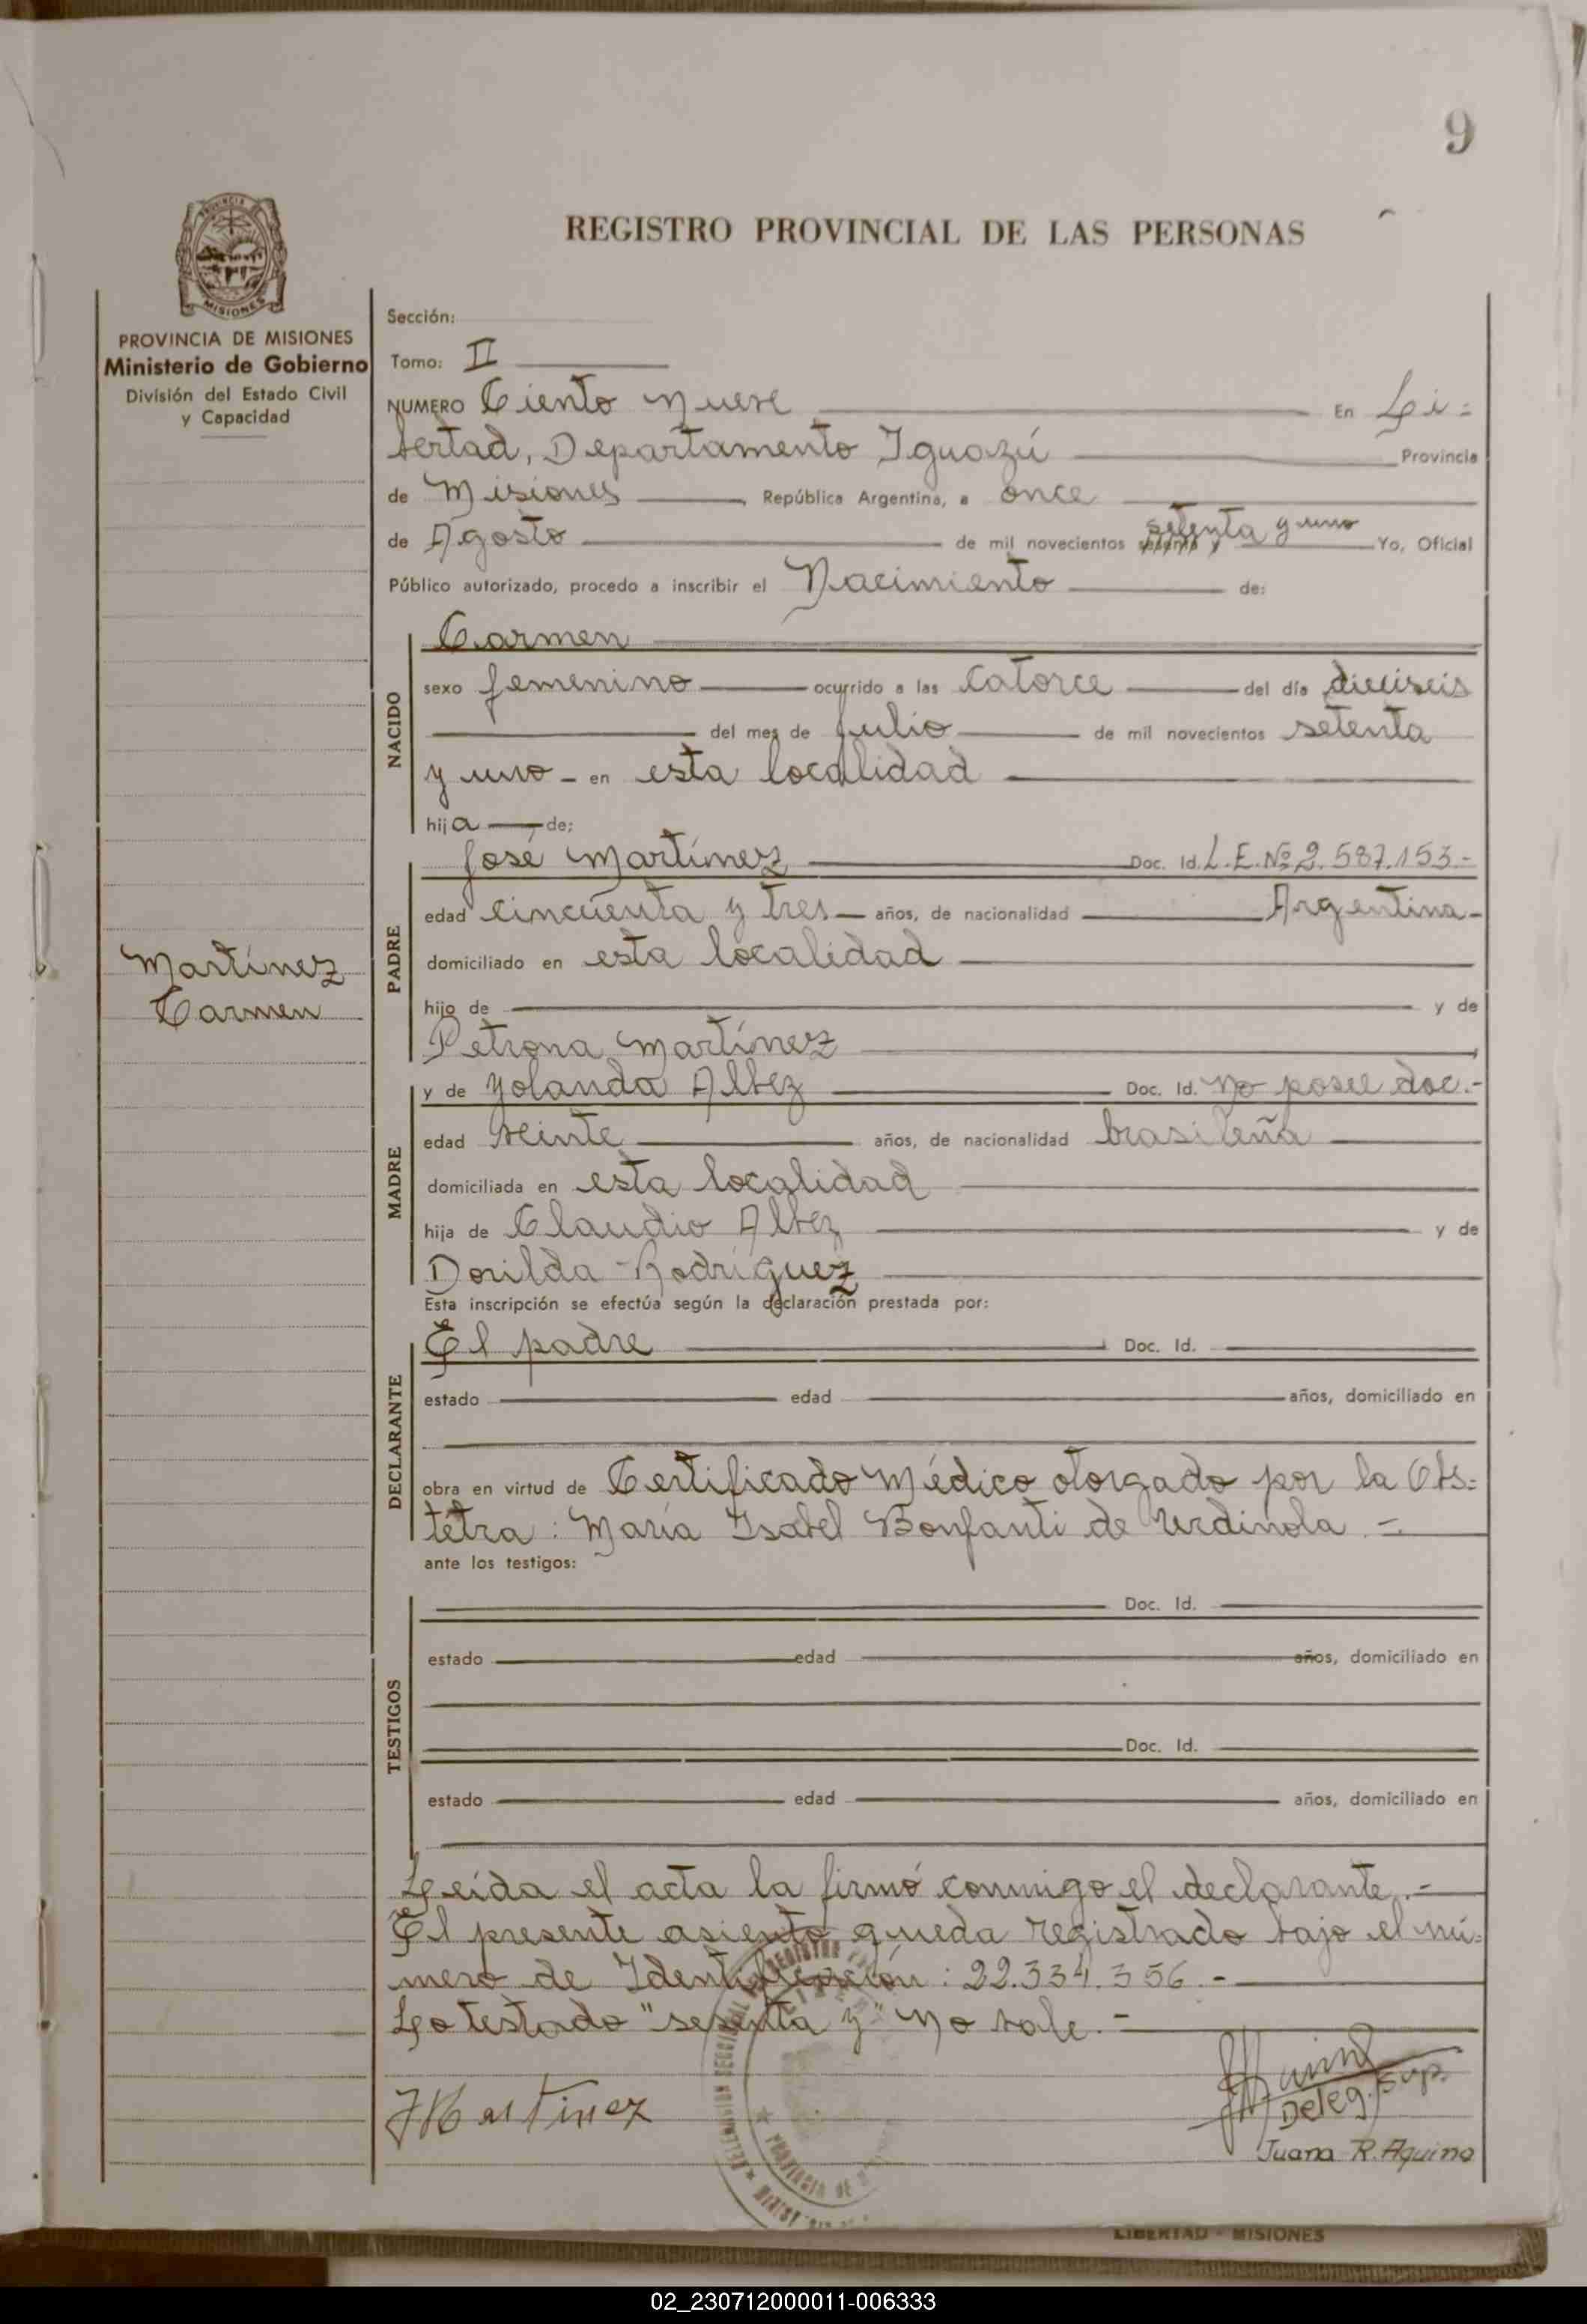 9
REGISTRO PROVINCIAL DE LAS PERSONAS
MISIONES
PROVINCIA DE MISIONES
Ministerio de Gobierno
División del Estado Civil
y Capacidad
Sección:
Tomo: II
NUMERO Ciento nueve En Li=
bertad, Departamento Iguazú Provincia
de Misiones, República Argentina, a once
de Agosto de mil novecientos setenta y uno Yo, Oficial
Público autorizado, procedo a inscribir el Nacimiento de:
NACIDO
Carmen
sexo femenino ocurrido a las catorce del día dieciseis
del mes de Julio de mil novecientos setenta
y uno - en esta localidad
hija de;
PADRE
José Martínez Doc. Id. L.E.Nº 2.587.153.-
edad cincuenta y tres años, de nacionalidad Argentina-
domiciliado en esta localidad
hijo de y de
Petrona Martínez
Martínez
Carmen
MADRE
y de Yolanda Albez Doc. Id. No posee doc.-
edad veinte años, de nacionalidad brasileña
domiciliada en esta localidad
hija de Claudio Albez y de
Dorilda Rodríguez
Esta inscripción se efectúa según la declaración prestada por:
DECLARANTE
El padre Doc. Id.
estado edad años, domiciliado en
obra en virtud de Certificado Médico otorgado por la Obs=
tétra: María Isabel Bonfanti de Urdinola.-
ante los testigos:
TESTIGOS
Doc. Id.
estado edad años, domiciliado en
Doc. Id.
estado edad años, domiciliado en
Leída el acta la firmó conmigo el declarante.-
El presente asiento queda registrado bajo el nú=
mero de Identificación: 22.334.356.-
Lo testado "sesenta y" no vale.-
JMartinez
Deleg. Sup.
Juana R. Aquino
LIBERTAD - MISIONES
02_230712000011-006333